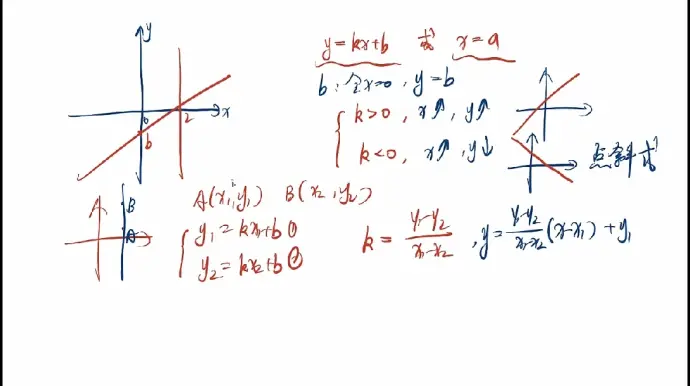 y
y=kx+b 或 x=a
b:令x=0, y=b
0 2 x
b
k>0, x↑, y↑
k<0, x↑, y↓
点斜式
A(x₁,y₁) B(x₂,y₂)
B
A
y₁=kx₁+b ①
y₂=kx₂+b ②
k = \frac{y₁-y₂}{x₁-x₂}, y=\frac{y₁-y₂}{x₁-x₂}(x-x₁)+y₁